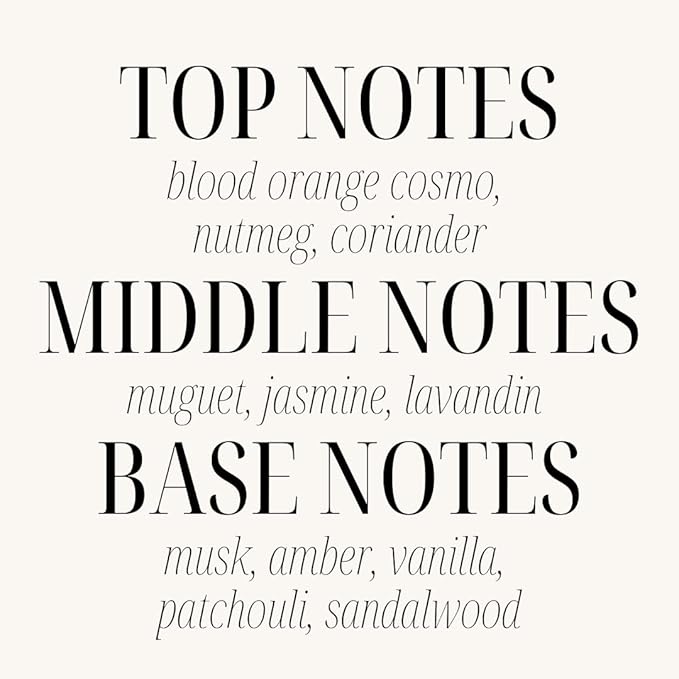 TOP NOTES
blood orange cosmo,
nutmeg, coriander
MIDDLE NOTES
muguet, jasmine, lavandin
BASE NOTES
musk, amber, vanilla,
patchouli, sandalwood